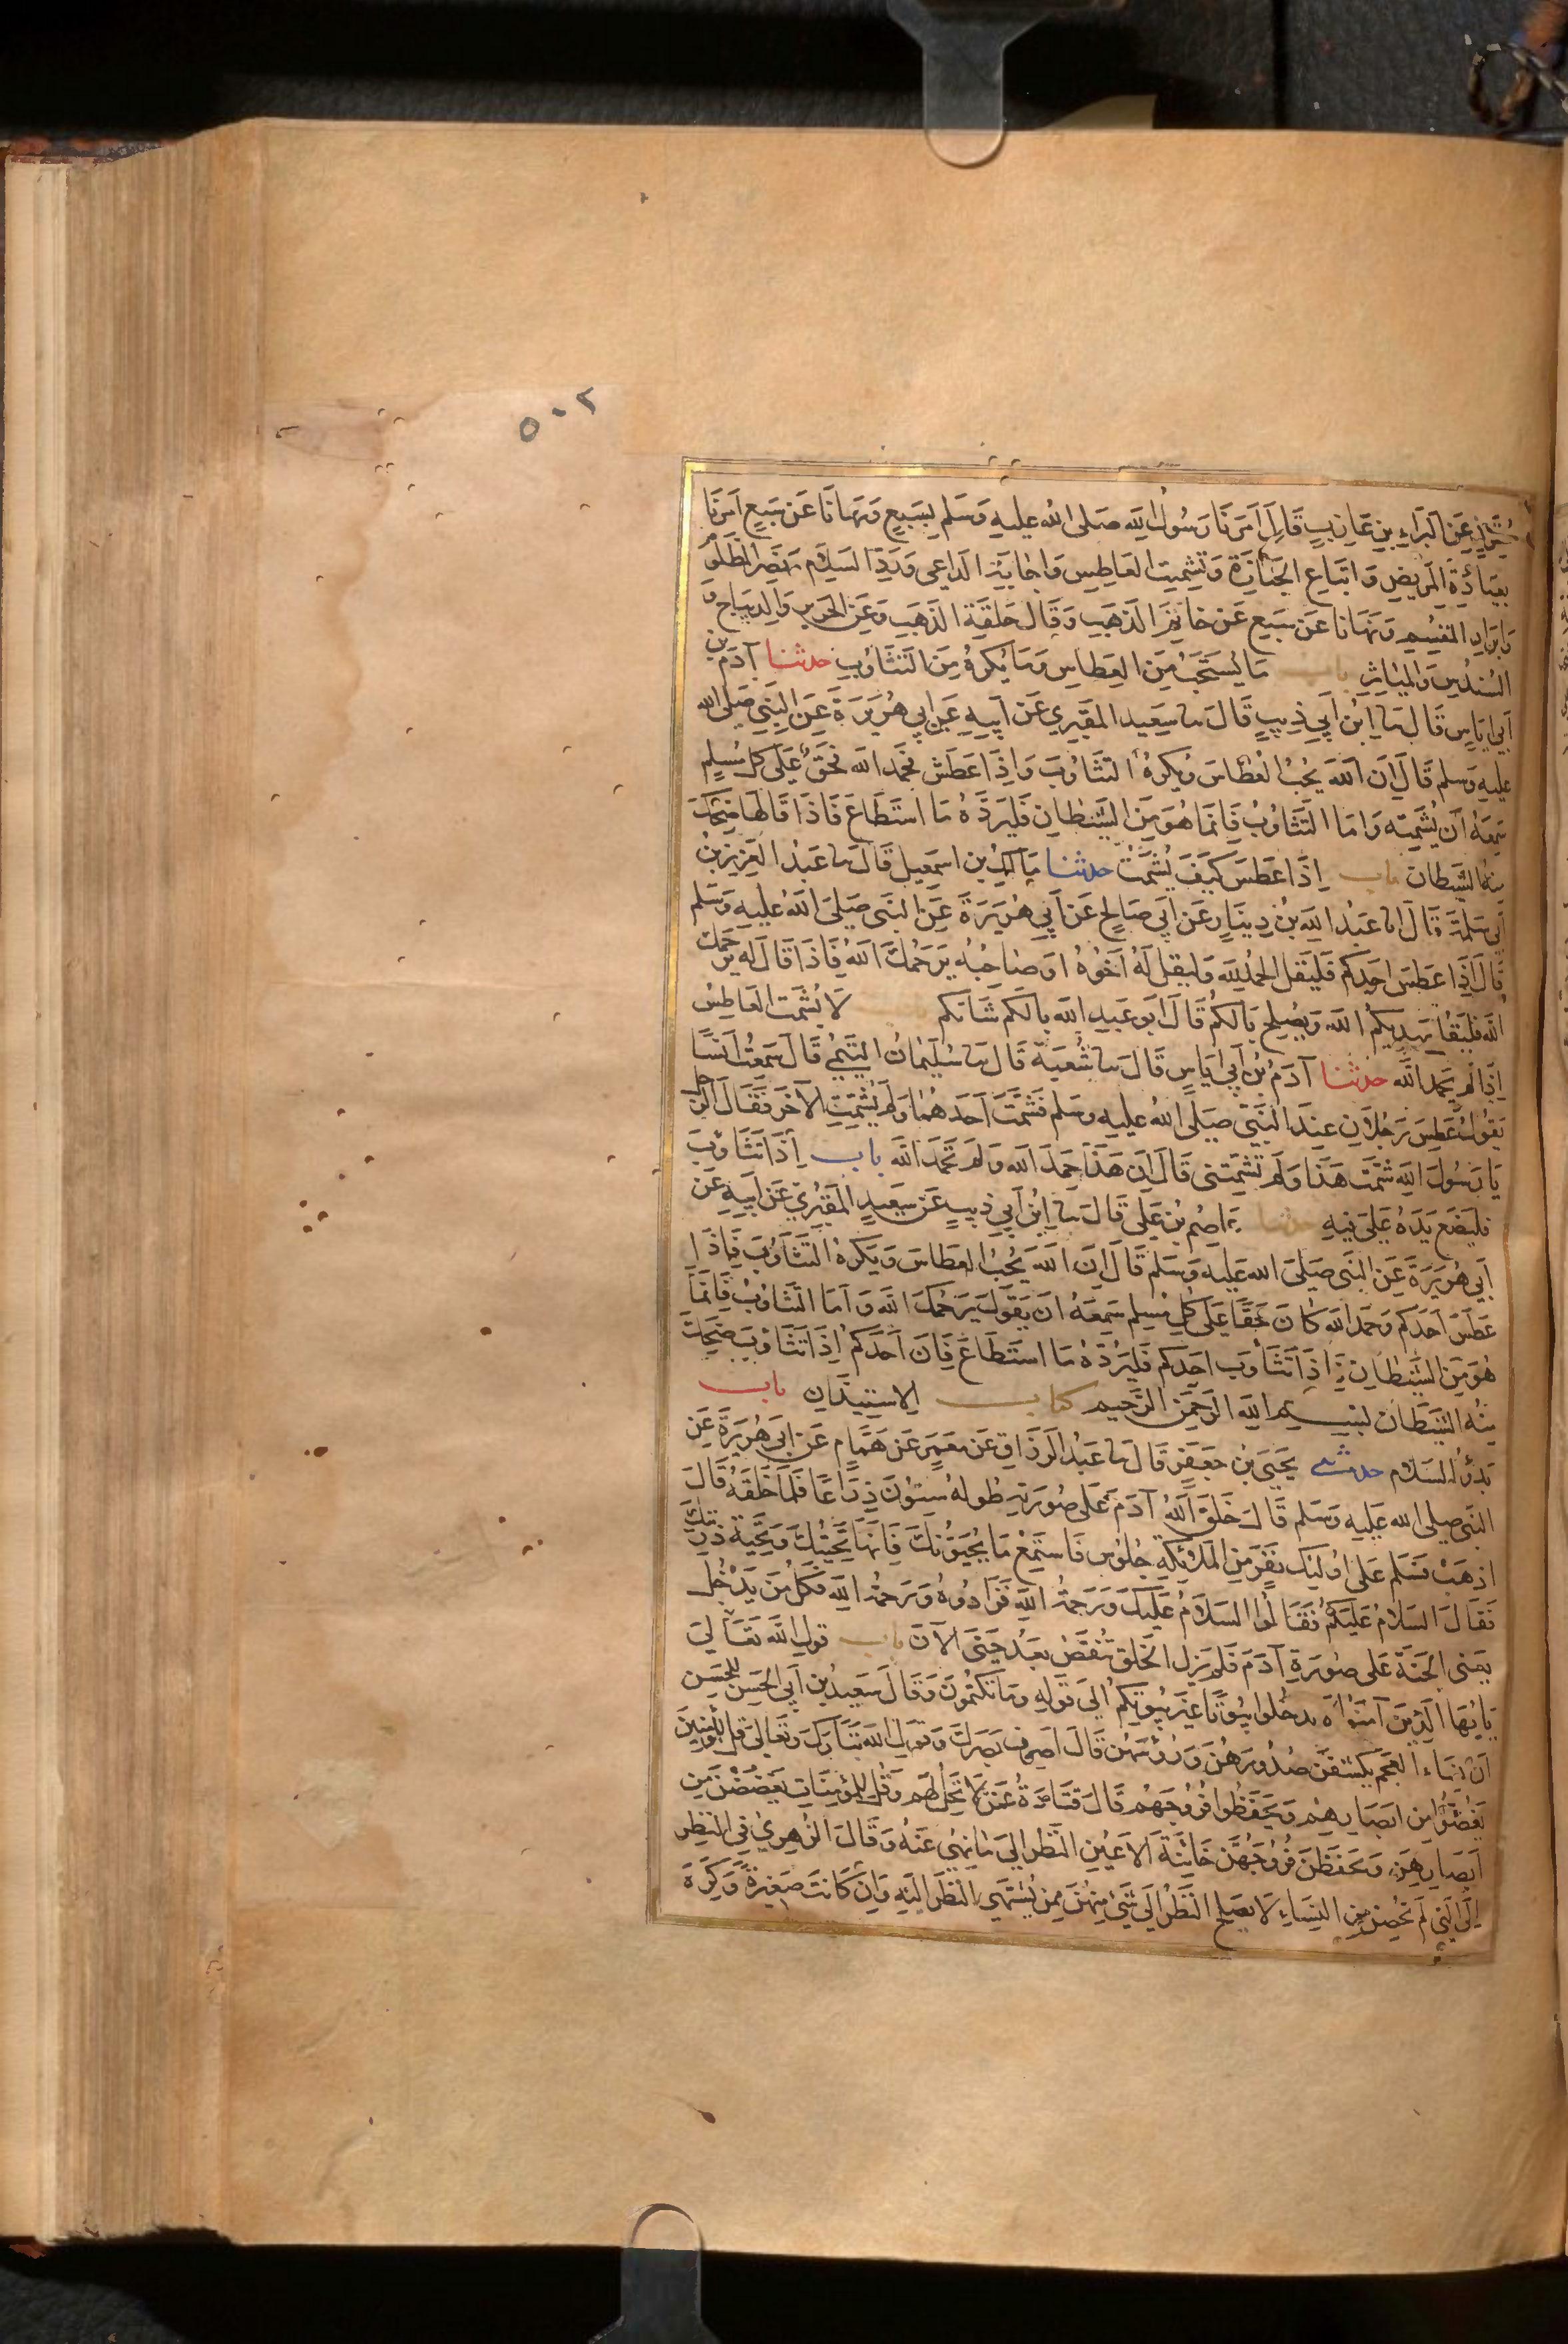 ٥٠٢
عَنِ البَرَاءِ بنِ عَازِبٍ قَالَ اَمَرَنَا رَسُولُ الله صَلى الله عليهِ وَسَلم بِسَبعٍ وَنَهَانَا عَن سَبعٍ اَمَرَنَا
بعيَادَةِ المَريضِ وَاتبَاعِ الجَنَازَةِ وَتشمِيتِ العَاطِسِ وَاِجَابَةِ الداعِى وَرَدِّ السَلَامِ وَنَصرِ المَظلُوم
وَابرَارِ المقسِمِ وَنهَانا عَن سَبعٍ عَن خاتَمِ الذهَبِ وَقَال حَلقَةِ الذهَبِ وَعَن الحَرير وَالدِيبَاج وَ
السُندُسِ وَالميَاثِرِ باب مَا يُستَحَبُّ مِنَ العِطاسِ وَمَا يُكرهُ مِنَ التثَاوُبِ حدثنا آدَم بن
اَبي ايَاسٍ قَال نا ابن اَبي ذِيبٍ قَالَ نا سَعِيد المقبُرِي عَن اَبِيهِ عَن اَبي هُرَيرَةَ عَن النَبِي صَلى الله
عليهِ وَسلم قَالَ اِنَ اللهَ يُحِبُّ العُطَاسَ وَيكرَهُ التثَاوُبَ وَاِذَا عَطَسَ فَحَمِدَ الله فحَقٌّ عَلَى كل مُسلِمٍ
سَمِعَهُ اَن يُشمِتَه وَاَمَا التثَاوُبُ فَاِنمَا هُوَ مِنَ الشَيطانِ فَليَرُدَّهُ مَا استَطَاعَ فَاذَا قَالَ هَا ضَحِكَ
مِنهُ الشَيطان باب اِذَا عَطَسَ كَيفَ يُشَمَّتُ حدثنا مَالِكُ بن اسمَعِيل قَالَ نا عَبدُ العَزيز بنُ
اَبي سَلمَةَ قَالَ انا عَبدُ الله بنُ دِينَارٍ عَن اَبي صَالِحٍ عَن اَبي هُرَيرَةَ عَن النبَى صَلىَ اللهُ عَليهِ وَسَلم
قَالَ اِذَا عَطسَ احَدكم فَليَقل الحَمدُ لله وَليقل لَهُ اَخُوهُ اوَ صَاحِبُه يَرحَمُكَ اللهُ فَاذَا قَالَ لَه يَرحَمُك
اللهُ فليَقُل يَهدِيكمُ اللهُ وَيُصلِح بَالَكم قَالَ ابَو عَبدِ الله بالَكم شَانَكم لَا يُشَمَت العَاطِسُ
اِذَا لم يَحمد الله حدثنا آدَمُ بنُ اَبي ايَاسٍ قَالَ نا شُعبَة قَالَ نا سُليمَانُ التَيمِي قَالَ سَمِعتُ اَنَسًا
يَقُولُ عَطسَ رَجُلَانِ عِندَ النبَيِّ صَلَى اللهُ عليهِ وَسلم فَشَمَّتَ اَحَدَهُمَا وَلَم يُشمِتِ الآخَرَ فَقَالَ الرَجُل
يَا رَسُولَ اللهِ شَمَّتَ هَذَا وَلَم تشمِتنى قَالَ اِنَ هَذَا حَمِدَ اللهَ وَلَم تَحمَد اللهَ باب اِذَا تَثَاوَبَ
فليَضَع يَدَهُ عَلىَ فِيهِ حدثنا عَاصمُ بنُ عَلي قَالَ نا اِبنُ اَبي ذيبٍ عَن سَعِيدٍ المقبُرِي عَن اَبِيهِ عَن
اَبي هُرَيرَةَ عَن النَبى صَلىَ الله عَليهِ وَسَلم قَالَ اِنَ اللهَ يُحِبُ العطَاسَ وَيَكرَهُ التَثَاوُبَ فَاِذَا
عَطَسَ اَحَدكم وَحَمِدَ الله كانَ حَقًا عَلىَ كُلِ مُسلِمٍ سَمِعَهُ اَن يَقُولَ يَرحَمُكَ الله وَاَمَا التَثاوُبُ فَاِنمَا
هُوَ مِنَ الشَيطانِ فَاِذَا تَثَاوَبَ احَدكم فَليَرُدَّهُ مَا استَطَاعَ فَاِنَ اَحَدَكم اِذَا تَثَاوَبَ ضحِكَ
مِنهُ الشَيطَانُ بسم اللهِ الرَحمَنِ الرَحِيم كتاب الاستِيذَانِ باب
بَدؤُ السَلام حدثنى يَحيَى بنُ جعَفَرٍ قَالَ نا عَبدُ الرَزاق عَن مَعمَرٍ عَن هَمَّامٍ عَن ابىَ هُرَيرَةَ عَن
النَبَى صلى الله عَليهِ وَسلم قَالَ خَلَقَ اللهُ آدَمَ عَلى صُورَتهِ طولهُ ستونَ ذِرَاعًا فَلمَا خَلَقَهُ قَالَ
اذهَب فَسَلم عَلى اُولئِكَ نَفَرٍ مِنَ المَلَائِكَةِ جُلوُس فَاستمِع مَا يُحيَوُنكَ فَاِنهَا تَحِيَتُكَ وَتحيَّة ذُرِيَتِكَ
فَقَالَ السَلَامُ عَلَيكُم فَقَالُوا السَلَامُ عَلَيكَ وَرَحمَةُ اللهِ فَزَادُوهُ وَرَحمةُ اللهِ فكُلُّ مَن يَدخُل
يعَنى الجَنَة عَلى صُورَةِ آدَمَ فَلَم يَزلِ الخَلق تنقصُ بَعدُ حَتَى الآنَ باب قَولِ اللهِ تَعَالىَ
يَايُهَا الَذِينَ آمَنُوا لَا تدخُلوا بيُوُتًا غَيرَ بيُوتكم الىَ قَولِهِ وَمَا تَكتمُونَ وَقَالَ سَعِيدُ بن اَبي الحَسَن للحَسَن
اَن نِسَاءَ العَجَم يَكشفنَ صُدُورَهُنَ وَرُؤسَهُن قَالَ اصرِف بَصَرَكَ وَقولِ اللهِ تبَارَكَ وَتَعَالىَ قل للمُؤمِنِينَ
يَغُضُّوا مِن ابصَارِهِم وَيَحفَظُوا فُرُوجَهُم قَالَ قتَادَةُ عَمَّن لا تَحِلُّ لَهم وَقُل لِلمُؤمِنَاتِ يَغضُضنَ مِن
اَبصَارِهِنَ وَيحفَظنَ فُرُوجَهُنَ خَائِنَةَ الاَعيُنِ النَّظر الىَ مَا نُهِى عَنهُ وَقَالَ الزُهرِيُّ فِي النَظَرِ
اِلَى التِي لَم تَحِض مِن النِسَاءِ لَا يَصلح النَظَرُ اِلَى شَئ مِنهُنَ مِمَن يُشتَهَى النَظرُ الَيهِ وَاِن كَانَت صَغِيرَةً وَكَرَهَ